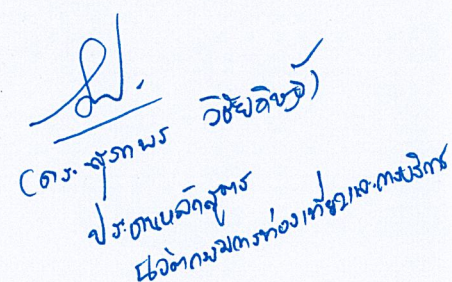 (ดร. สุภาพร วิชัยดิษฐ์)
ประธานหลักสูตร
นวัตกรรมการท่องเที่ยวและการบริการ